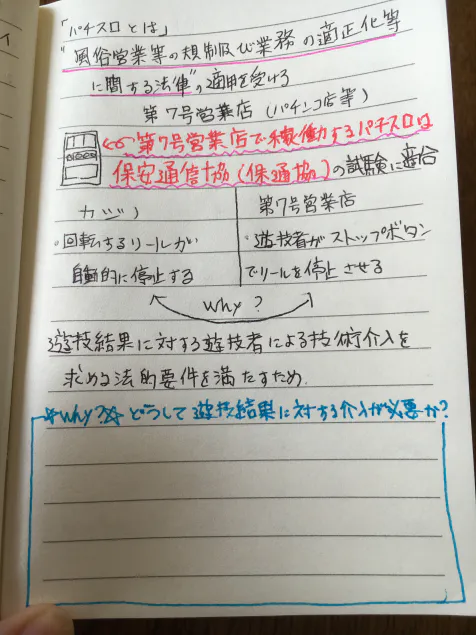 「パチスロとは」
"風俗営業等の規制及び業務の適正化等
に関する法律"の適用を受ける
第7号営業店(パチンコ店等)
第7号営業店で稼働するパチスロは
保安通信協(保通協)の試験に適合
カジノ
・回転するリールが
自動的に停止する
第7号営業店
・遊技者がストップボタン
でリールを停止させる
why?
遊技結果に対する遊技者による技術介入を
求める法的要件を満たすため.
☆why?☆どうして遊技結果に対する介入が必要か?